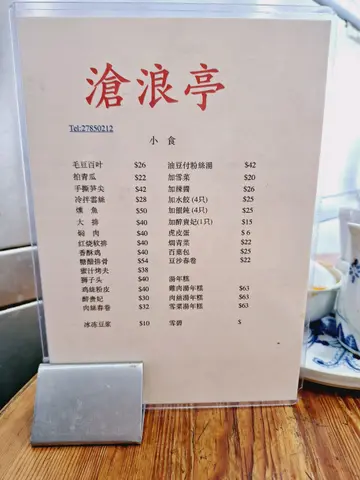 滄浪亭
Tel:27850212
小 食
毛豆百叶 $26 油豆付粉絲湯 $42
拍青瓜 $22 加雪菜 $20
手撕笋尖 $42 加辣醬 $26
冷拌雲絲 $28 加水餃 (4只) $25
燻 魚 $50 加餛飩 (4只) $25
大 排 $40 加醉貴妃(1只) $15
焖 肉 $40 虎皮蛋 $ 6
红烧软排 $40 焗青菜 $22
香酥鸡 $40 百葉包 $25
糖醋排骨 $54 豆沙春卷 $22
蜜汁烤夫 $38
狮子头 $40 湯年糕
鸡絲粉皮 $40 雞肉湯年糕 $63
醉贵妃 $30 肉絲湯年糕 $63
肉絲春卷 $32 雪菜湯年糕 $63
冰冻豆浆 $10 雪碧 $